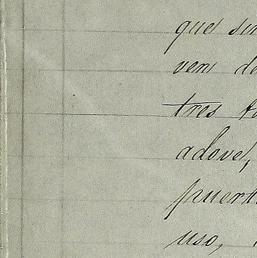 que
ven
tres
adove,
puert
uso,